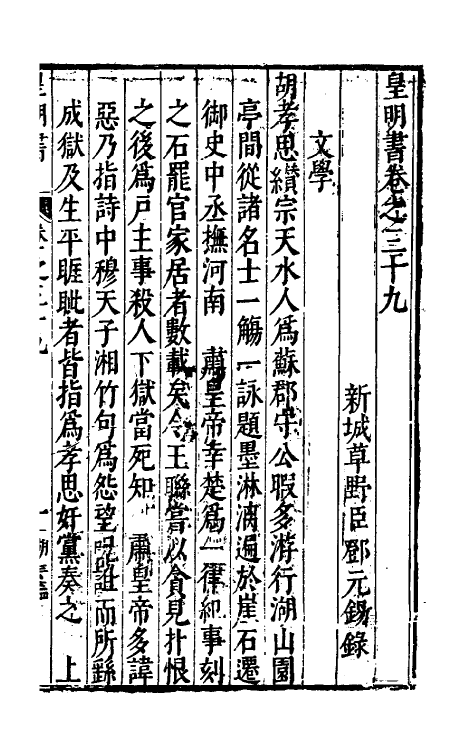 皇明書卷之三十九
新城草野臣鄧元錫錄
文學
胡孝思纘宗天水人為蘇郡守公暇多游行湖山園
亭間從諸名士一觴一詠題墨淋漓遍於崖石遷
御史中丞撫河南 肅皇帝幸楚為一律紀事刻
之石罷官家居者數載矣令王聯嘗以貪見扑恨
之後為戶主事殺人下獄當死知 肅皇帝多諱
惡乃指詩中穆天子湘竹句為怨望咒詛而所繇
成獄及生平睚眦者皆指為孝思奸黨奏之 上
皇明書
卷之三十九
一